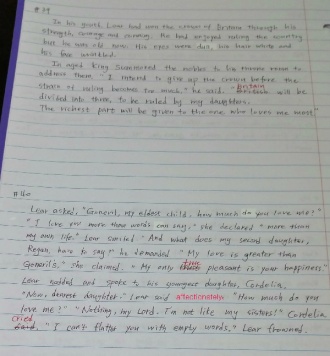 # 39
In his youth Lear had won the crown of Britain through his
strength, courage and cunning. He had enjoyed ruling the country
but he was old now. His eyes were dim, his hair white and
his face wrinkled.
In aged King summoned the nobles to his throne room to
address them. "I intend to give up the crown before the
strain of ruling becomes too much," he said. "Britain will be
divided into three, to be ruled by my daughters.
The richest part will be given to the one who loves me most"
#40
Lear asked, "Goneril, my eldest child, how much do you love me?"
"I love you more than words can say," she declared "more than
my own life." Lear smiled "And what does my second daughter,
Regan, have to say?" he demanded "My love is greater than
Goneril's," she claimed. "My only true pleasant is your happiness."
Lear nodded and spoke to his youngest daughter, Cordelia,
"Now, dearest daughter." Lear said affectionately "How much do you
love me?" "Nothing, my Lord. I'm not like my sisters!" Cordelia
cried. "I can't flatter you with empty words." Lear frowned.